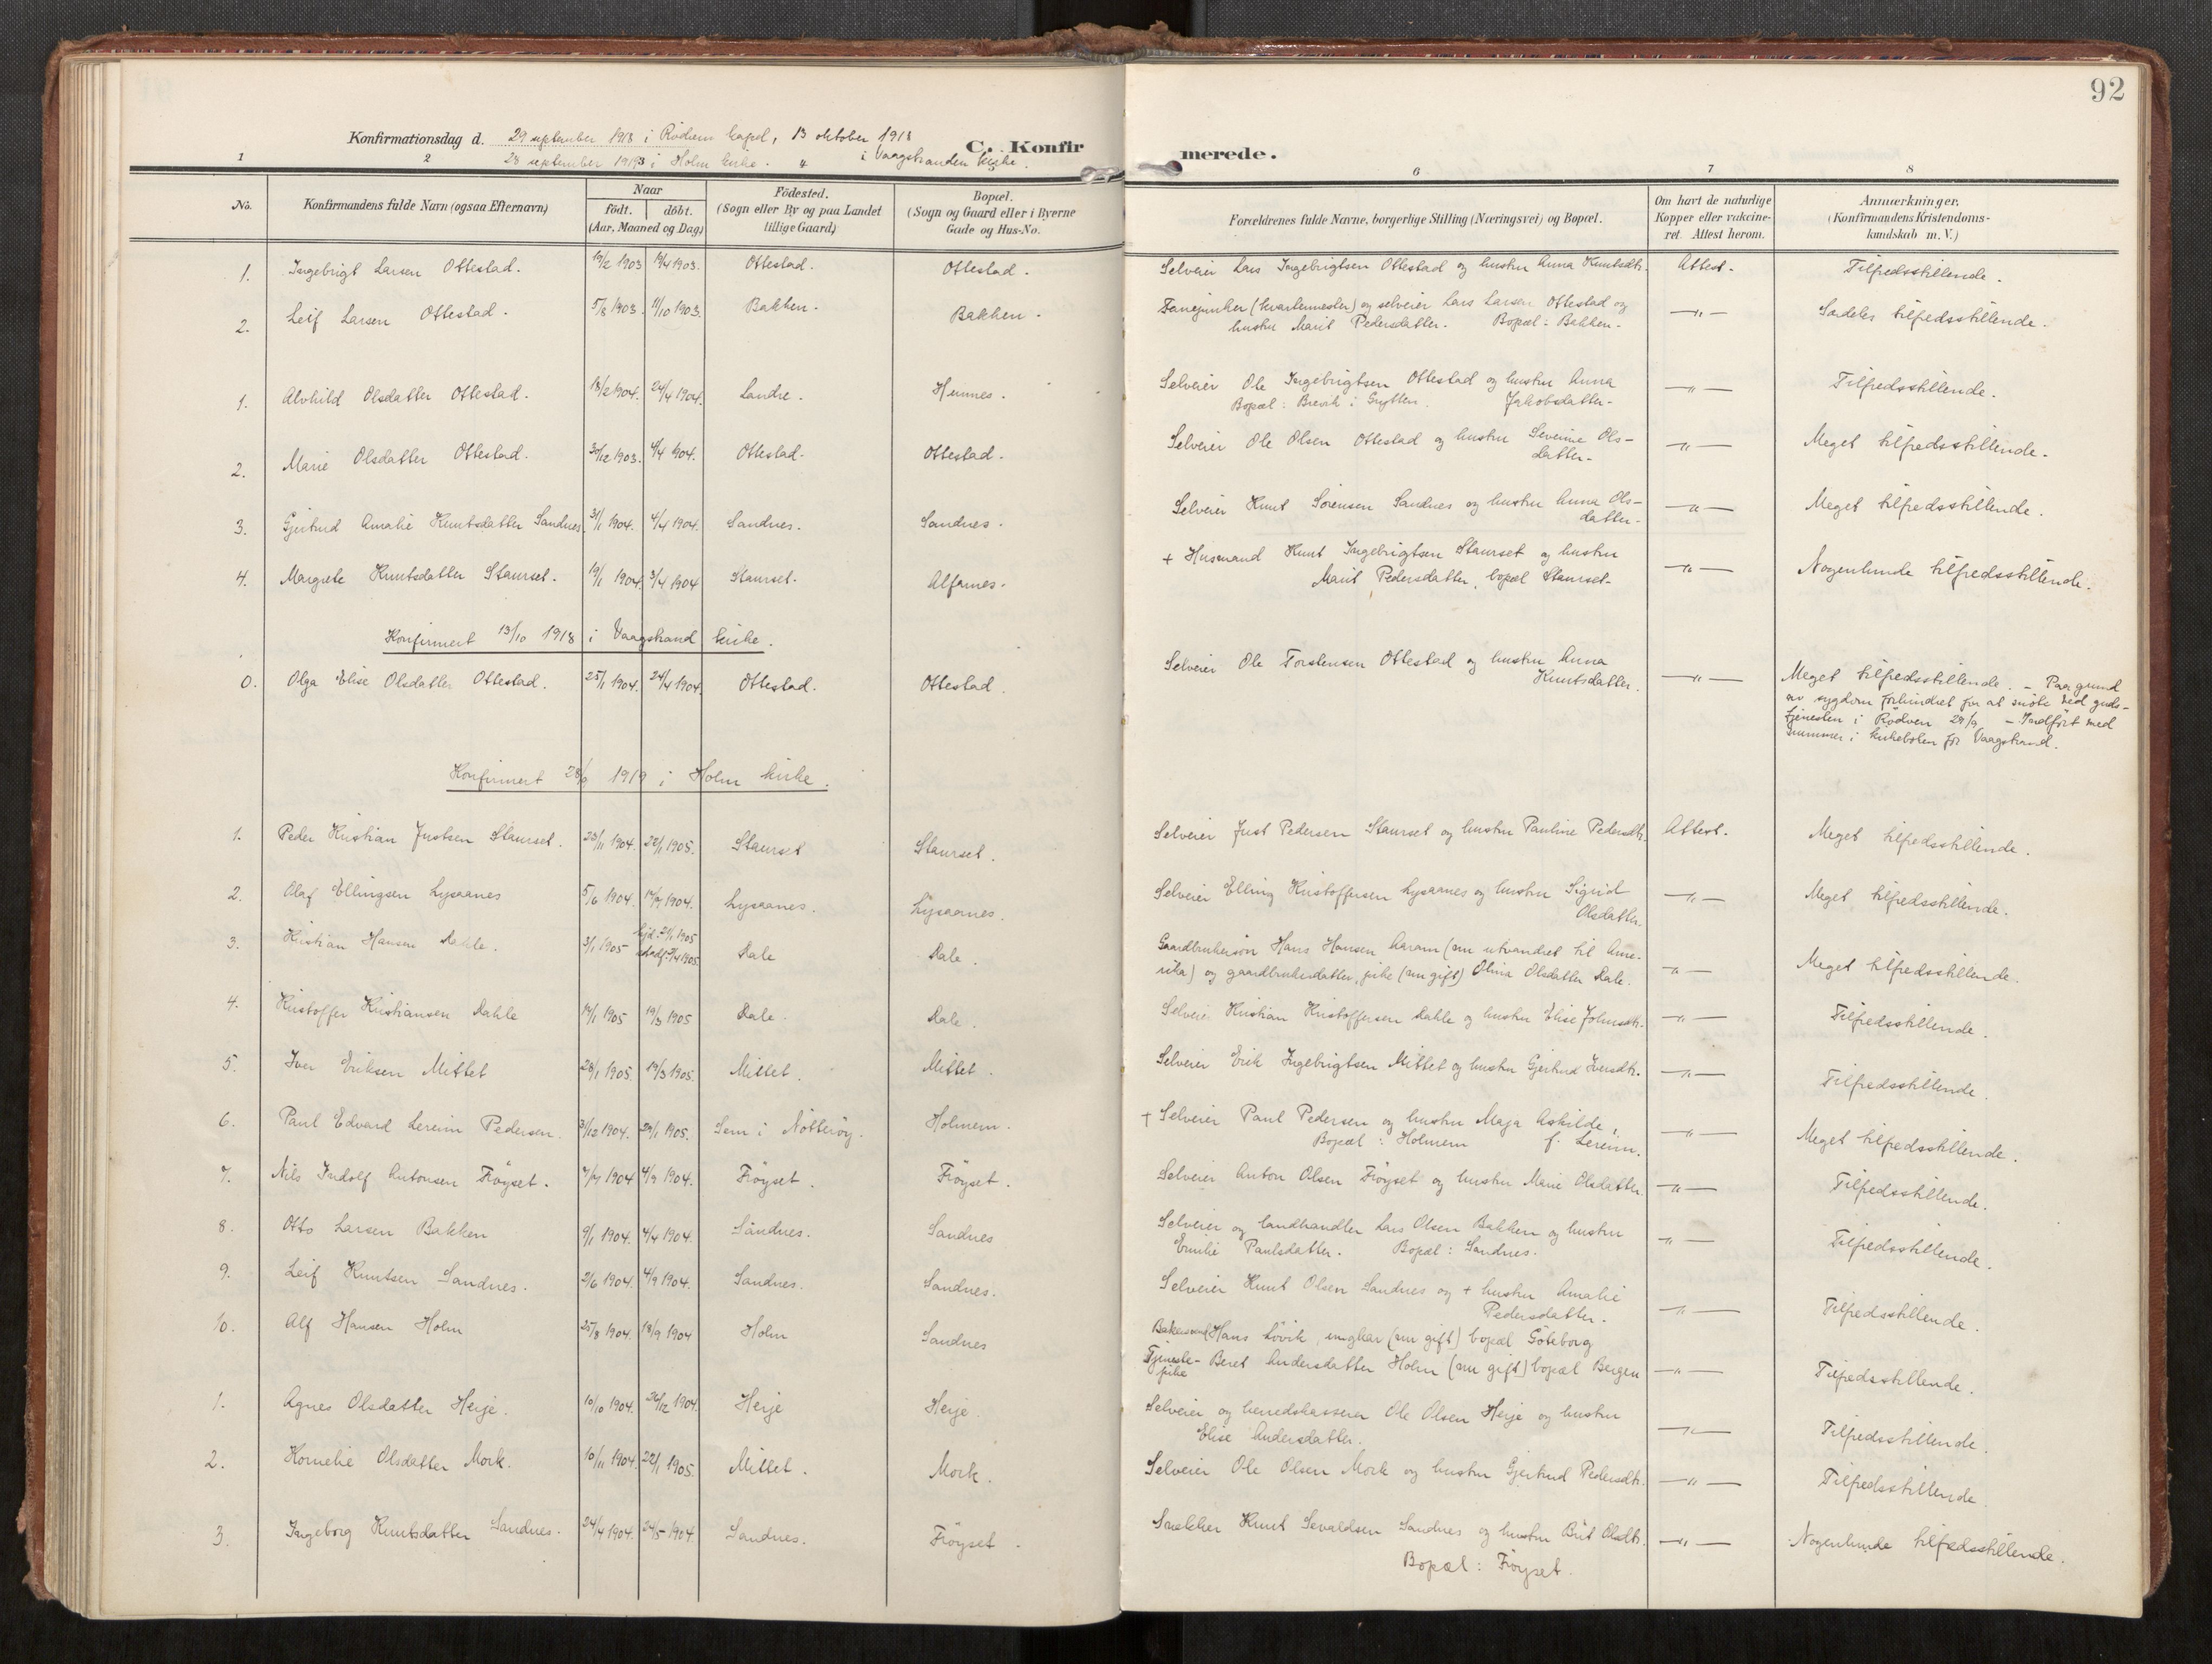 92
Konfirmationsdag d. 29 september 1918 i Rødven kapel, 13 oktober 1918
28 september 1919 i Holm kirke. " i Vaagstranden kirke.
C. Konfirmerede.
1 2 6 7 8
No. Konfirmandens fulde Navn (ogsaa Efternavn) Naar födt. döbt. (Aar, Maaned og Dag) Födested. (Sogn eller By og paa Landet tillige Gaard) Bopæl. (Sogn og Gaard eller i Byerne Gade og Hus-No. Forældrenes fulde Navne, borgerlige Stilling (Næringsvei) og Bopæl. Om havt de naturlige Kopper eller vakcineret. Attest herom. Anmærkninger. (Konfirmandens Kristendomskundskab m. V.)
1. Ingebrigt Larsen Ottestad. 19/2 1903 19/4 1903. Ottestad. Ottestad. Selveier Lars Ingebrigtsen Ottestad og hustru Anna Knutsdtr. Attest. Tilfredsstillende.
2. Leif Larsen Ottestad. 5/8 1903. 11/10 1903. Bakken. Bakken. Fanejunker (kvartermester) og selveier Lars Larsen Ottestad og
hustru Marit Pedersdatter. Bopæl: Bakken. —"— Særdeles tilfredsstillende.
1. Alvhild Olsdatter Ottestad. 18/2 1904. 24/4 1904. Landre. Hennes. Selveier Ole Ingebrigtsen Ottestad og hustru Anna
Bopæl: Brevik i Grytten. Jakobsdatter. —"— Tilfredsstillende.
2. Marie Olsdatter Ottestad. 30/12 1903. 4/4 1904. Ottestad. Ottestad. Selveier Ole Olsen Ottestad og hustru Severine Ols-
datter. —"— Meget tilfredsstillende.
3. Gjertrud Amalie Knutsdatter Sandnes. 31/1 1904. 4/4 1904. Sandnes. Sandnes. Selveier Knut Sørensen Sandnes og hustru Anna Ols-
datter. —"— Meget tilfredsstillende.
4. Margrete Knutsdatter Staurset. 19/1 1904 3/4 1904 Staurset. Alfarnes. + Husmand Knut Ingebrigtsen Staurset og hustru
Marit Pedersdatter, bopæl Staurset. —"— Nogenlunde tilfredsstillende.
Konfirmert 13/10 1918 i Vaagstrand kirke.
0. Olga Elise Olsdatter Ottestad. 25/1 1904. 24/4 1904. Ottestad. Ottestad. Selveier Ole Torstensen Ottestad og hustru Anna
Knutsdatter. —"— Meget tilfredsstillende. - Paa grund
av sygdom forhindret fra at møte ved guds-
tjenesten i Rødven 29/9 - Indført med
nummer i kirkeboken for Vaagstrand.
Konfirmert 28/9 1919 i Holm kirke.
1. Peder Kristian Justsen Staurset. 23/11 1904. 22/1 1905. Staurset Staurset. Selveier Just Pedersen Staurset og hustru Pauline Pedersdtr. Attest. Meget tilfredsstillende.
2. Olaf Ellingsen Lysaanes 5/6 1904. 17/7 1904. Lysaanes. Lysaanes. Selveier Elling Kristoffersen Lysaanes og hustru Sigrid
Olsdatter. —"— Meget tilfredsstillende.
3. Kristian Hansen Dahle. 3/1 1905 Dale Dale. Gaardbrukersøn Hans Hansen Aaram (nu utvandret til Ame-
rika) og gaardbrukerdatter, pike (nu gift) Olina Olsdatter Dale. —"— Meget tilfredsstillende.
4. Kristoffer Kristiansen Dahle 14/1 1905 19/3 1905 Dale. Dale. Selveier Kristian Kristoffersen Dahle og hustru Elise Johnsdtr. —"— Tilfredsstillende.
5. Iver Eriksen Mittet 28/1 1905. 19/3 1905. Mittet. Mittet. Selveier Erik Ingebrigtsen Mittet og hustru Gjertrud Iversdtr. —"— Tilfredsstillende.
6. Paul Edvard Lereim Pedersen. 31/12 1904. 29/1 1905. Sem i Nøtterøy. Holmem. + Selveier Paul Pedersen og hustru Maja Askilde,
Bopæl: Holmem f. Lereim. —"— Meget tilfredsstillende.
7. Nils Indolf Antonsen Frøyset. 7/7 1904 4/9 1904. Frøyset. Frøyset. Selveier Anton Olsen Frøyset og hustru Marie Olsdatter. —"— Tilfredsstillende.
8. Otto Larsen Bakken 9/1 1904. 4/4 1904. Sandnes. Sandnes Selveier og landhandler Lars Olsen Bakken og hustru
Emilie Paulsdatter. Bopæl: Sandnes. —"— Tilfredsstillende.
9. Leif Knutsen Sandnes. 2/6 1904. 4/9 1904. Sandnes. Sandnes. Selveier Knut Olsen Sandnes og + hustru Amalie
Pedersdatter. —"— Tilfredsstillende.
10. Alf Hansen Holm 25/8 1904. 18/9 1904 Holm Sandnes Hans Løvik, ungkar (nu gift) bopæl Göteborg
Tjeneste-
pike Beret Andersdatter Holm (nu gift) bopæl Bergen —"— Tilfredsstillende.
1. Agnes Olsdatter Herje. 10/10 1904. 26/12 1904. Herje Herje. Selveier og herredskasserer Ole Olsen Herje og hustru
Elise Andersdatter. —"— Tilfredsstillende.
2. Kornelie Olsdatter Mork. 10/11 1904. 22/1 1905. Mittet. Mork. Selveier Ole Olsen Mork og hustru Gjertrud Pedersdtr. —"— Tilfredsstillende.
3. Ingeborg Knutsdatter Sandnes. 24/4 1904. 24/5 1904 Sandnes. Frøyset. Snekker Knut Sevaldsen Sandnes og hustru Brit Olsdtr.
Bopæl: Frøyset. —"— Nogenlunde tilfredsstillende.